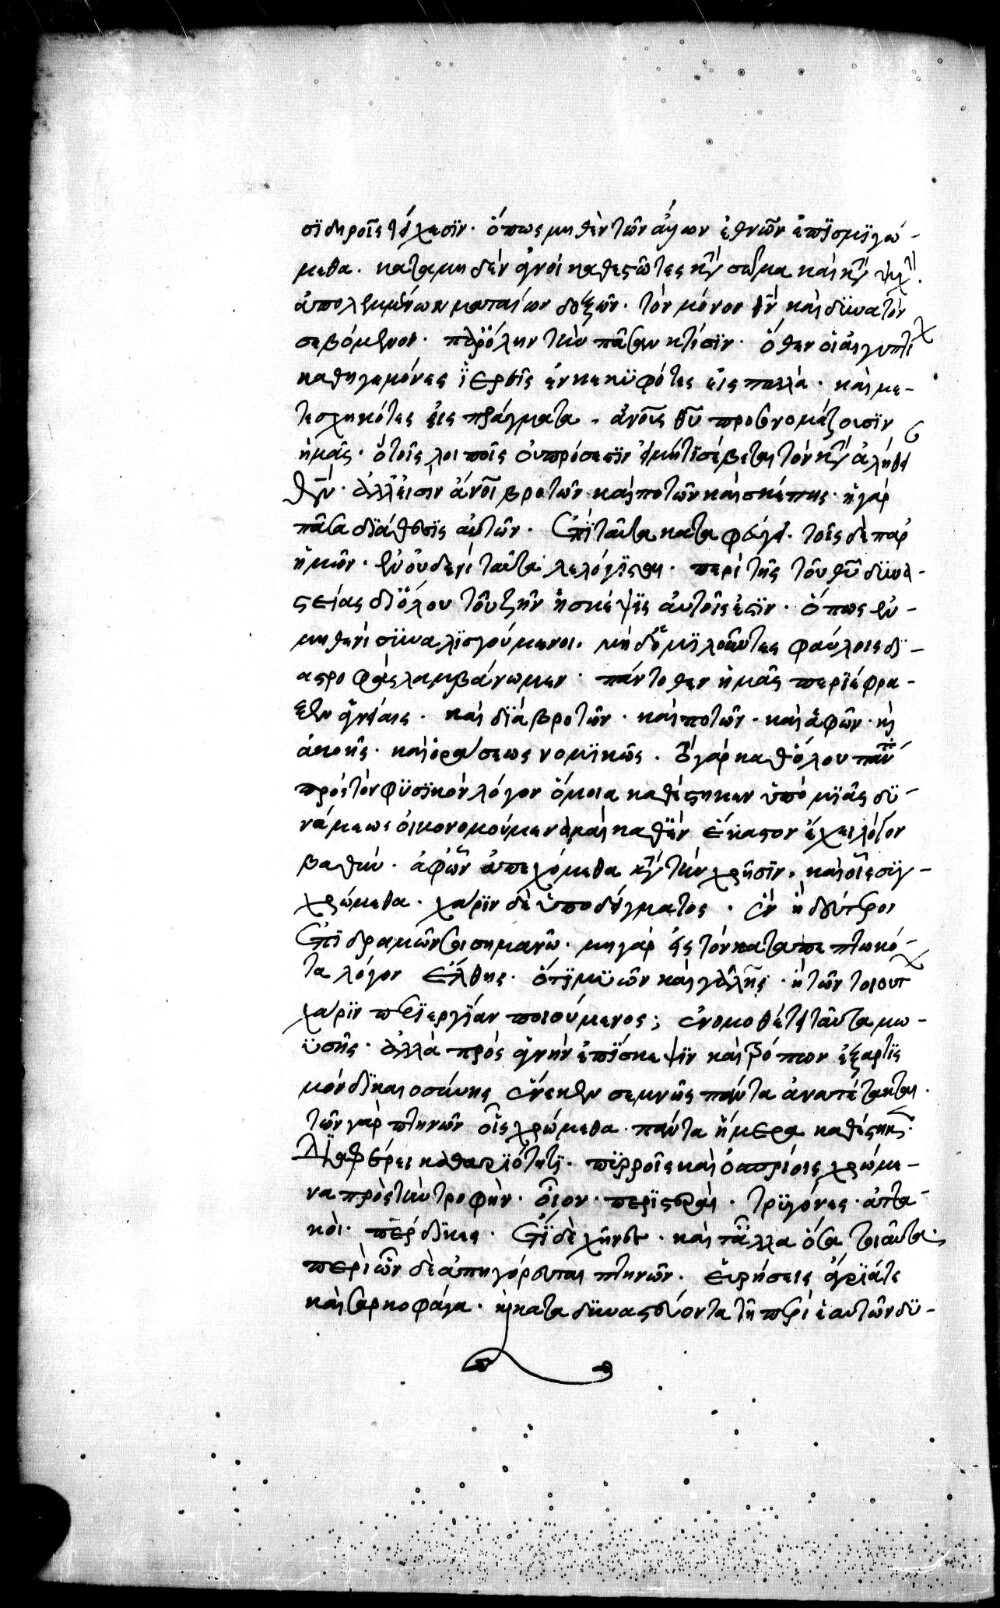 σιδηροῖς τείχεσιν· ὅπως μηθενὶ τῶν ἄλλων ἐθνῶν ἐπιμισγώ-
μεθα· κατὰ μηδὲν ἁγνοὶ καθεστῶτες κατὰ σῶμα καὶ κατὰ ψυχήν·
ἀπολελυμένων ματαίων δοξῶν· τὸν μόνον θν καὶ δυνατὸν
σεβόμενοι· παρ' ὅλην τὴν πᾶσαν κτίσιν· ὅθεν οἱ αἰγυπτί
καθηγεμόνες ἱερεῖς ἐγκεκυφότες εἰς πολλὰ· καὶ με-
τεσχηκότες εἰς πράγματα· ἀνους θυ προσονομάζουσιν
ἡμᾶς· ὃ τοῖς λοιποῖς οὐ πρόσεστιν εἰ μή τις σέβεται τὸν κατὰ ἀλήθει
θν· ἀλλ' εἰσὶν ἀνοι βρωτῶν καὶ ποτῶν καὶ σκέπης· ἡ γὰρ
πᾶσα διάθεσις αὐτῶν· ἐπὶ ταῦτα καταφεύγει· τοῖς δὲ παρ'
ἡμῶν· ἐν οὐδενὶ ταῦτα λελόγισται· περὶ τῆς τοῦ θυ δυνα-
στείας δι' ὅλου τοῦ ζῆν ἡ σκέψις αὐτοῖς ἐστιν· ὅπως ἐν
μηθενὶ συναλισγούμενοι· μηδ' ὁμιλοῦντες φαύλοις δι-
αστροφὰς λαμβάνωμεν· πάντοθεν ἡμᾶς περιέφρα-
ξεν ἁγνείαις· καὶ διὰ βρωτῶν· καὶ ποτῶν· καὶ ἁφῶν· καὶ
ἀκοῆς· καὶ ὁράσεως νομικῶς· τὸ γὰρ καθόλου πάντα
πρὸς τὸν φυσικὸν λόγον ὅμοια καθέστηκεν ὑπὸ μιᾶς δυ-
νάμεως οἰκονομούμενα καὶ καθ' ἓν ἕκαστον ἔχει λόγον
βαθύν· ἀφ' ὧν ἀπεχόμεθα κατὰ τὴν χρῆσιν· καὶ οἷς συγ-
χρώμεθα· χάριν δὲ ὑποδείγματος· ἓν ἢ δεύτερον
ἐπιδραμών σοι σημανῶ· μὴ γὰρ εἰς τὸν καταπεπτωκό-
τα λόγον ἔλθῃς· ὅτι μυῶν καὶ γαλῆς· ἢ τῶν τοιούτ
χάριν περιεργίαν ποιούμενος; ἐνομοθέτει ταῦτα μω-
υσῆς· ἀλλὰ πρὸς ἁγνὴν ἐπίσκεψιν καὶ τρόπων ἐξαρτισ
μὸν δικαιοσύνης ἕνεκεν σεμνῶς πάντα ἀνατέτακται·
τῶν γὰρ πτηνῶν οἷς χρώμεθα πάντα ἥμερα καθέστηκε·
Διαφέρει καθαριότητι· πυροῖς καὶ ὀσπρίοις χρώμε-
να πρὸς τὴν τροφὴν· οἷον· περιστεραὶ· τρυγόνες· ἀττα-
κοὶ· πέρδικες· ἔτι δὲ χῆνες· καὶ τἆλλα ὅσα τοιαῦτα·
περὶ ὧν δὲ ἀπηγόρευται πτηνῶν· εὑρήσεις ἄγριά τε
καὶ σαρκοφάγα· καὶ καταδυναστεύοντα τῇ περὶ ἑαυτῶν δυ-